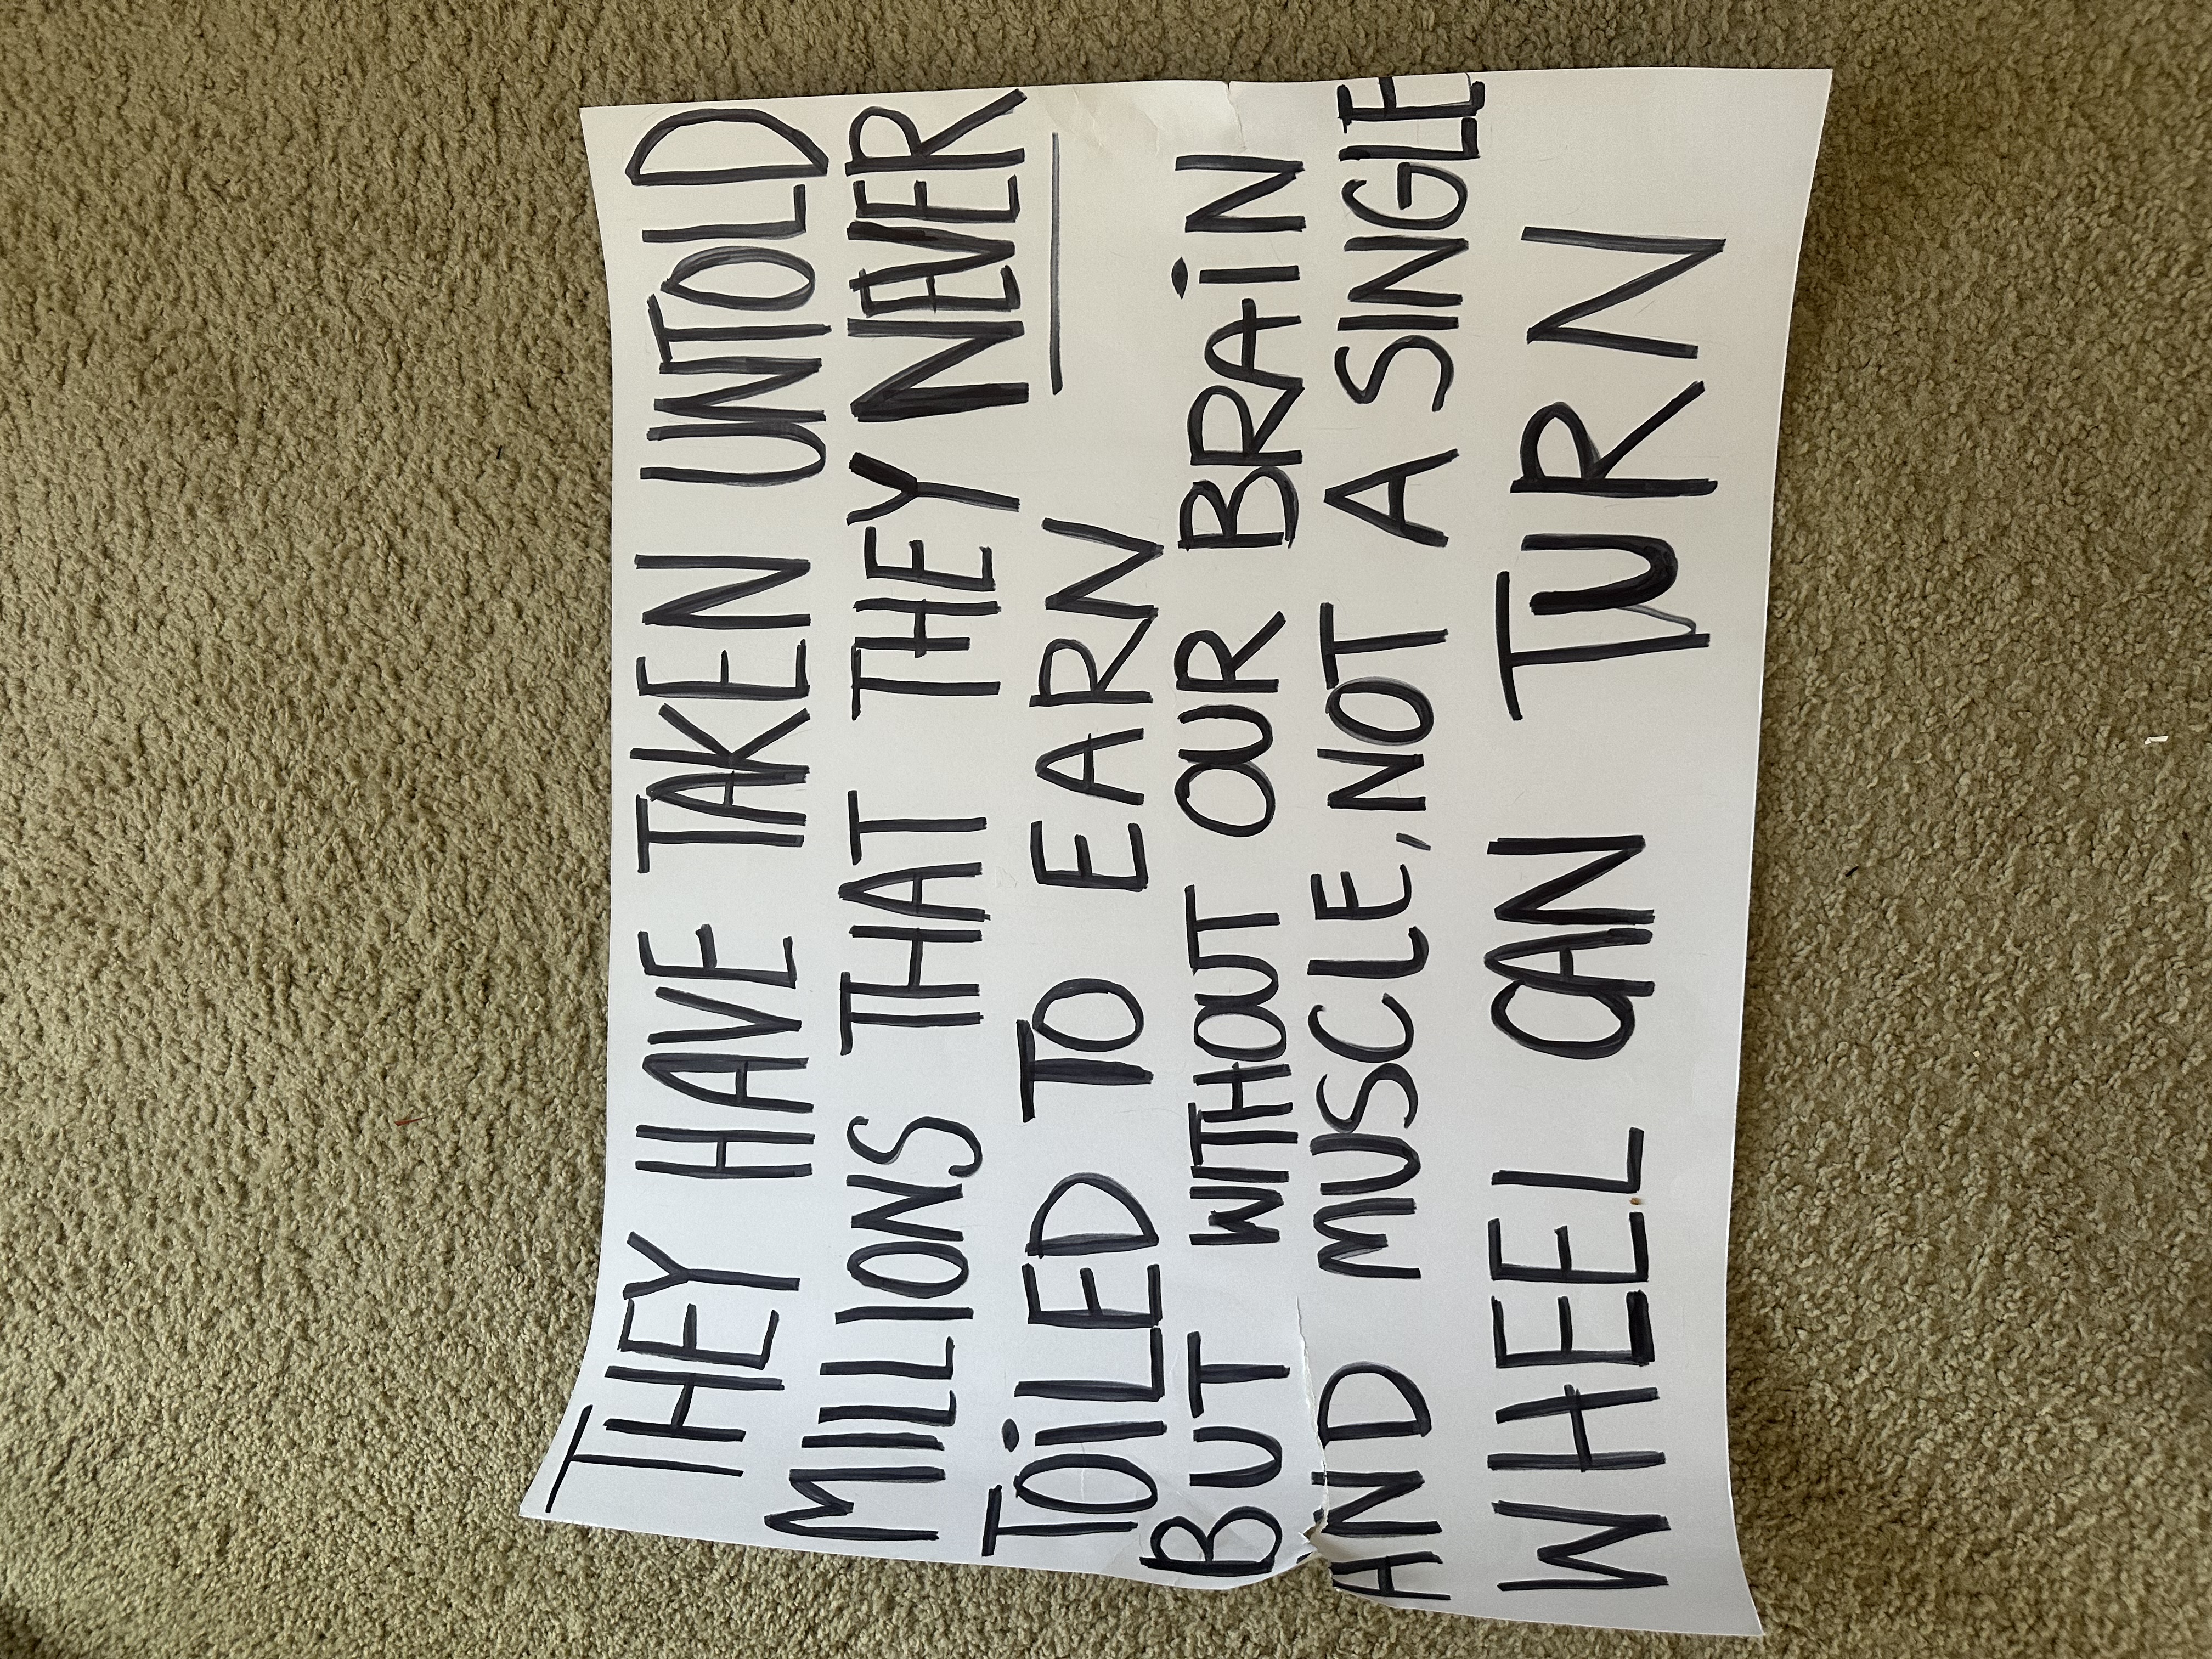 THEY HAVE TAKEN UNTOLD
MILLIONS THAT THEY NEVER
TOiLED TO EARN
BUT WITHOUT OUR BRAiN
AND MUSCLE, NOT A SINGLE
WHEEL CAN TURN